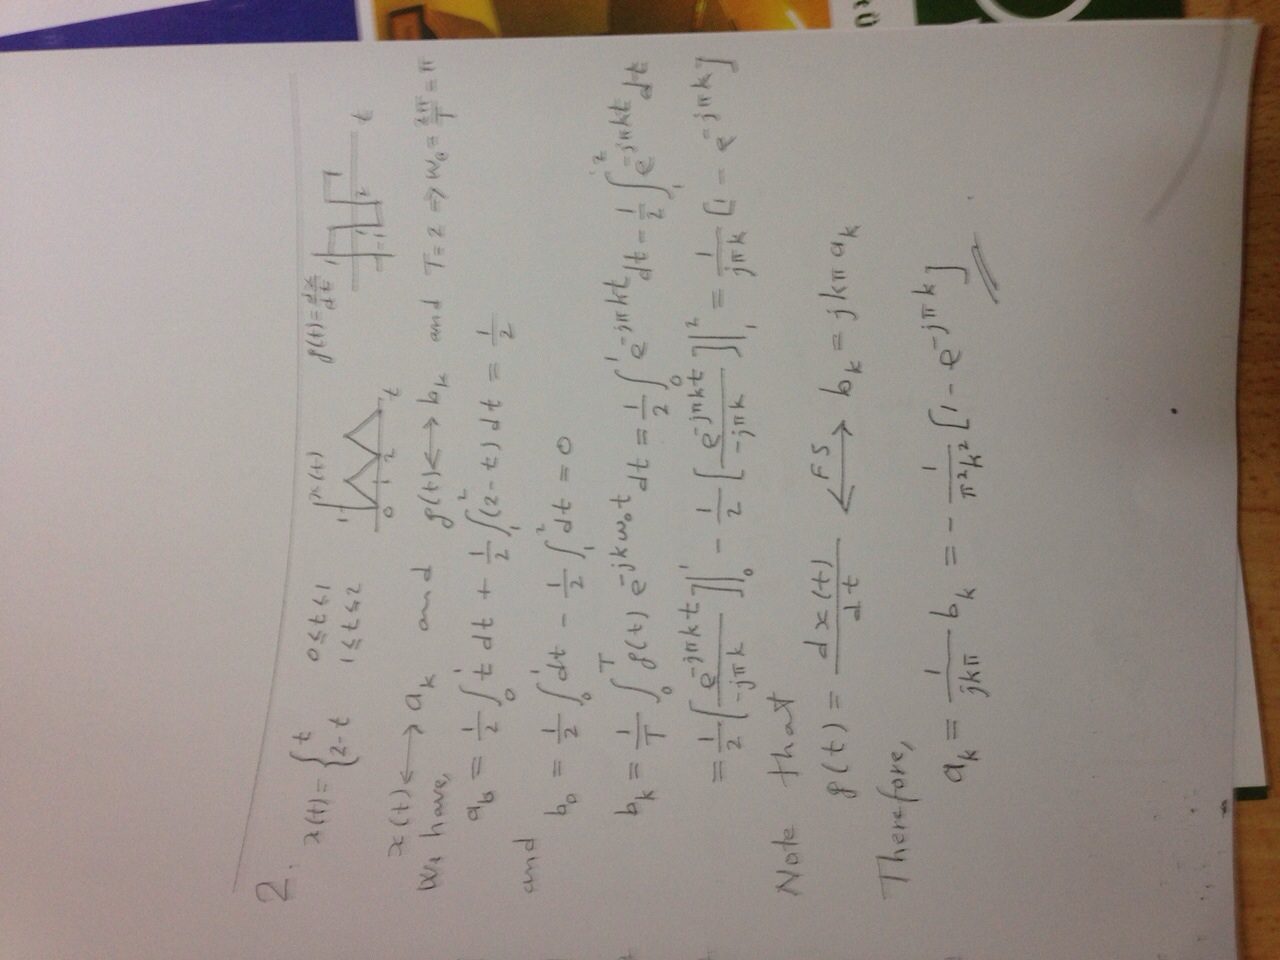 2.
x(t) = { t 0 ≤ t ≤ 1
2-t 1 ≤ t ≤ 2
x(t)
1
0 1 2 t
g(t) = dx/dt
1
1 2 t
-1
x(t) ⟷ a_k and g(t) ⟷ b_k and T = 2 ⇒ w_0 = 2π/T = π
We have,
a_0 = 1/2 ∫_0^1 t dt + 1/2 ∫_1^2 (2-t) dt = 1/2
and
b_0 = 1/2 ∫_0^1 dt - 1/2 ∫_1^2 dt = 0
b_k = 1/T ∫_0^T g(t) e^{-jkw_0t} dt = 1/2 ∫_0^1 e^{-jπkt} dt - 1/2 ∫_1^2 e^{-jπkt} dt
= 1/2 [e^{-jπkt}/-jπk]|_0^1 - 1/2 [e^{-jπkt}/-jπk]|_1^2 = 1/jπk [1 - e^{-jπk}]
Note that
g(t) = dx(t)/dt ⟷FS b_k = jkπ a_k
Therefore,
a_k = 1/jkπ b_k = - 1/π²k² [1 - e^{-jπk}]